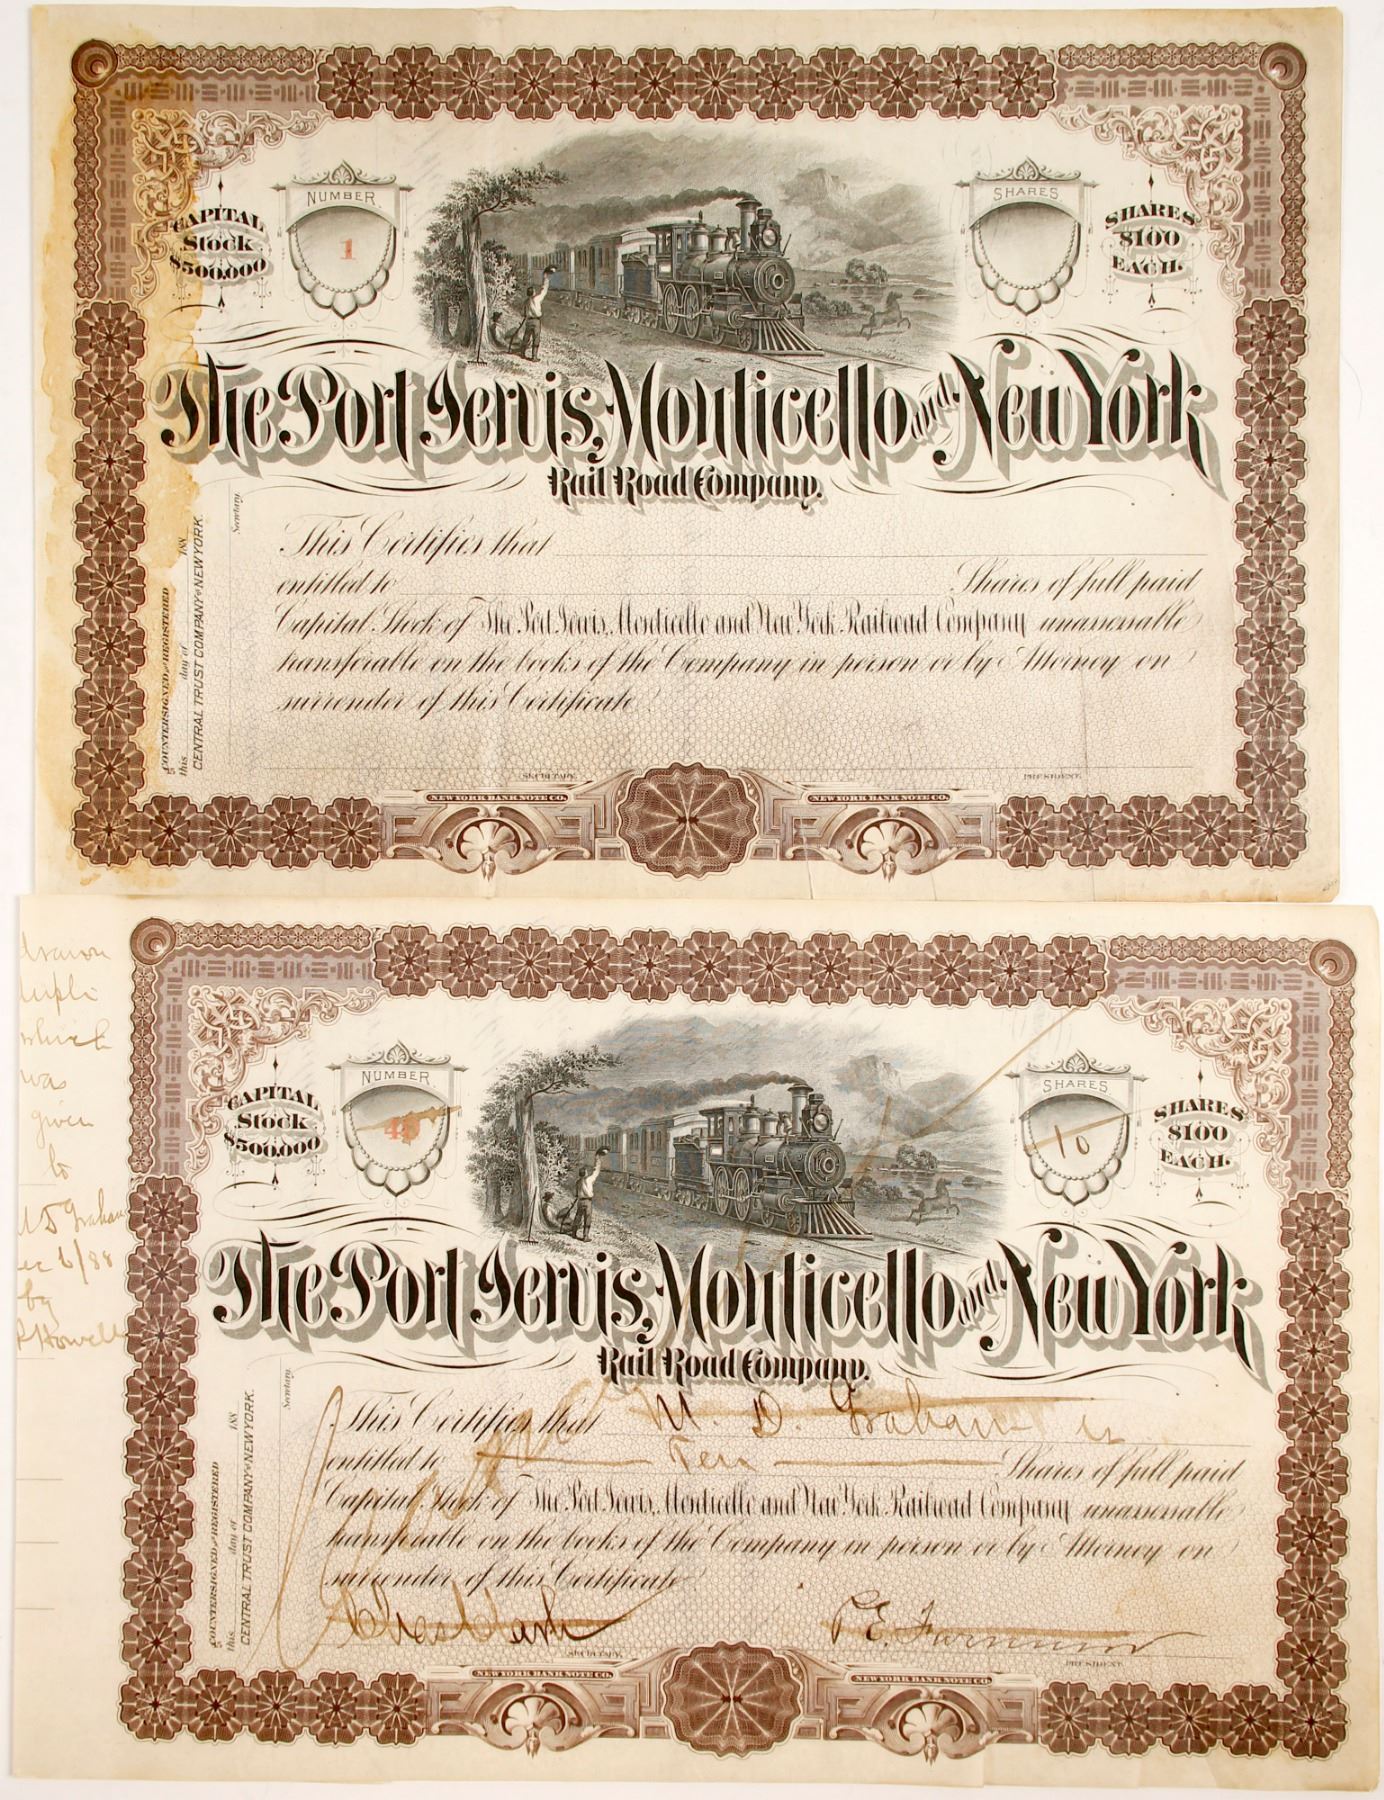 NUMBER
1
SHARES
CAPITAL
Stock
$500,000
SHARES
$100
EACH.
The Port Jervis, Monticello and New York
Rail Road Company.
This Certifies that
entitled to Shares of full paid
Capital Stock of The Port Jervis, Monticello and New York Railroad Company unassessable
transferable on the books of the Company in person or by Attorney on
surrender of this Certificate
SECRETARY.
PRESIDENT.
COUNTERSIGNED AND REGISTERED
this day of 188
CENTRAL TRUST COMPANY OF NEW YORK.
Secretary.
NEW YORK BANK NOTE CO.
NEW YORK BANK NOTE CO.
drawn
dupli
which
was
given
to
Graham
6/88
by
Howell
NUMBER
SHARES
10
CAPITAL
Stock
$500,000
SHARES
$100
EACH.
The Port Jervis, Monticello and New York
Rail Road Company.
This Certifies that M. D. Graham is
entitled to Ten Shares of full paid
Capital Stock of The Port Jervis, Monticello and New York Railroad Company unassessable
transferable on the books of the Company in person or by Attorney on
surrender of this Certificate
Chas Clark
P. E. Farnum
SECRETARY.
PRESIDENT.
COUNTERSIGNED AND REGISTERED
this day of 188
CENTRAL TRUST COMPANY OF NEW YORK.
Secretary.
NEW YORK BANK NOTE CO.
NEW YORK BANK NOTE CO.